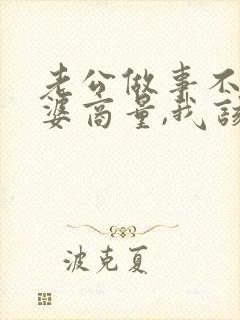 老公做事不
婆商量,我该
波克夏